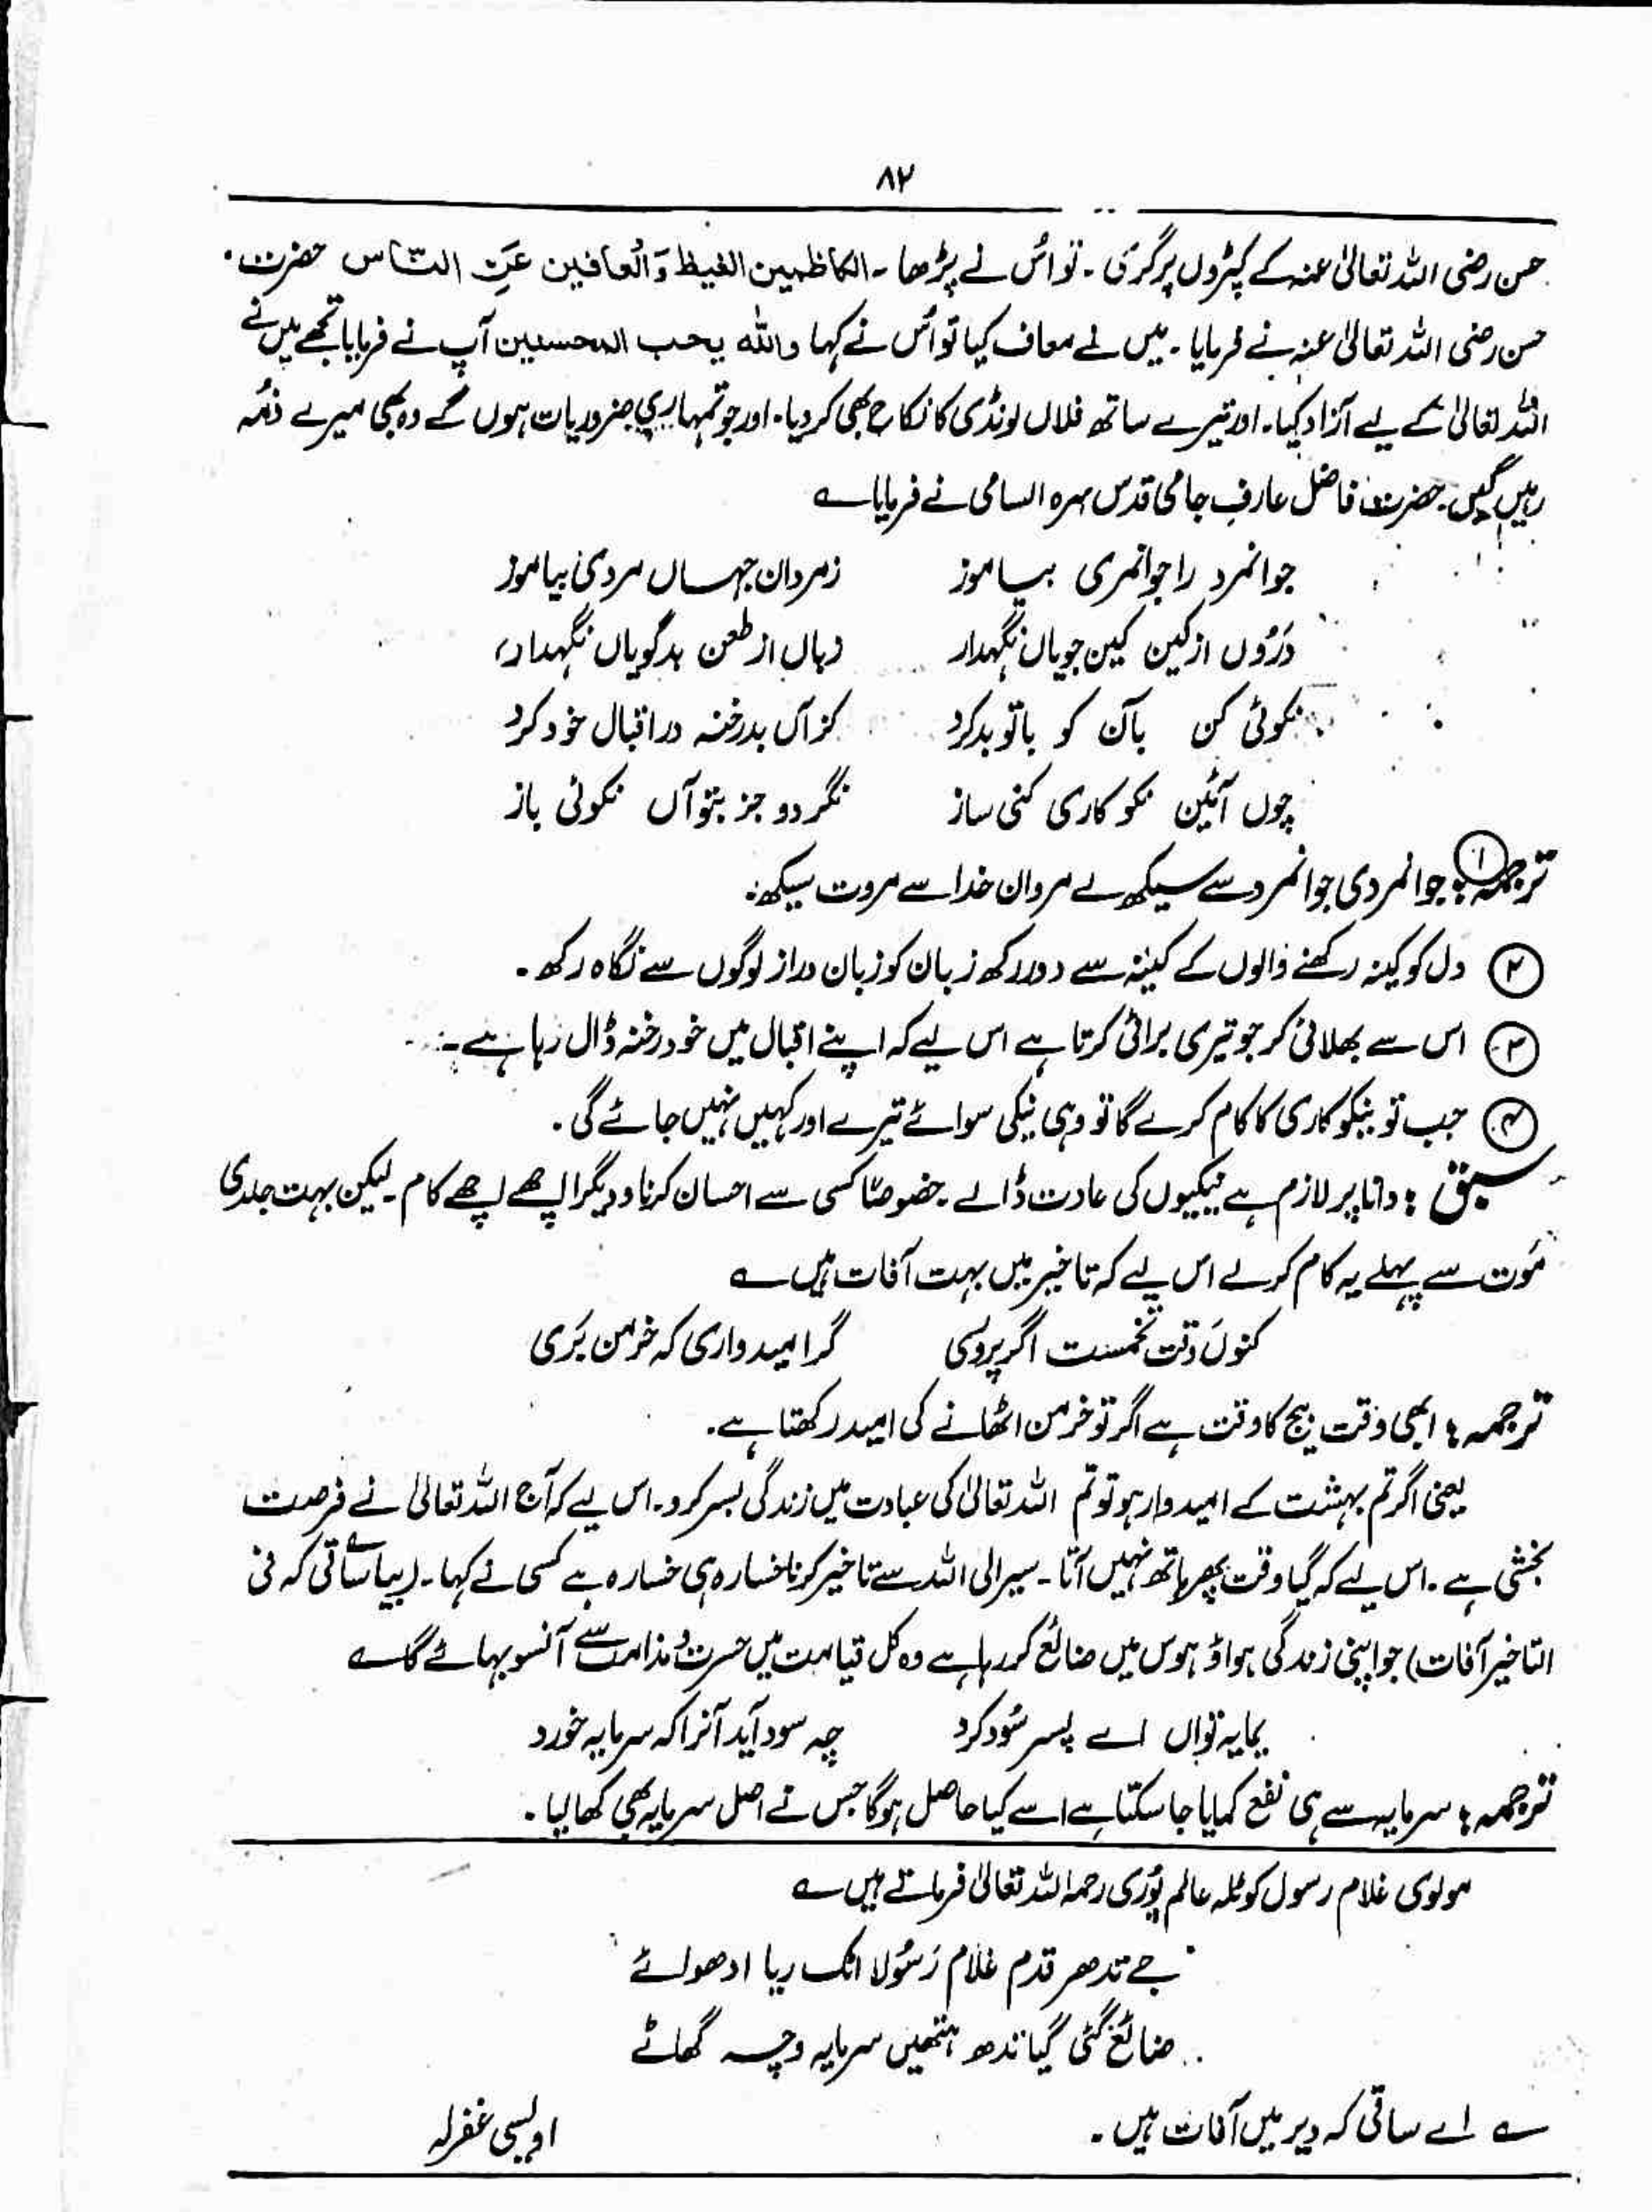 ۸۲
حسن رضی اللہ تعالیٰ عنہ کے کپڑوں پر گری ۔ تو اُس نے پڑھا ۔ الکاظمین الغیظ وَالْعافین عَنِ النّاس حضرت
حسن رضی اللہ تعالیٰ عنہ نے فرمایا ۔ میں نے معاف کیا تو اُس نے کہا واللّٰہ یحب المحسنین آپ نے فرمایا تجھے میں نے
اللہ تعالیٰ کے لیے آزاد کیا ۔ اور تیرے ساتھ فلاں لونڈی کا نکاح بھی کر دیا ۔ اور جو تمہاری ضروریات ہوں گے وہ بھی میرے ذمّہ
رہیں گیں ۔ حضرت فاضل عارف جامی قدس سرہ السامی نے فرمایا ؎
جوانمرد را جوانمری بیاموز زمردان جہاں مردی بیاموز
دَرُوں از کین کین جویاں نگہدار زباں از طعن بدگویاں نگہدار
نکوئی کن بآن کو باتو بد کرد کزاں بد رخنہ در اقبال خود کرد
چوں آئین نکو کاری کنی ساز نگردد جز بتو آں نکوئی باز
ترجمہ ؛ ① جوانمردی جوانمرد سے سیکھ لے مردان خدا سے مروت سیکھ ۔
② دل کو کینہ رکھنے والوں کے کینہ سے دور رکھ زبان کو زبان دراز لوگوں سے نگاہ رکھ ۔
③ اس سے بھلائی کر جو تیری برائی کرتا ہے اس لیے کہ اپنے اقبال میں خود رخنہ ڈال رہا ہے ۔
④ جب تو نیکو کاری کا کام کرے گا تو وہی نیکی سوائے تیرے اور کہیں نہیں جائے گی ۔
سبق ؛ دانا پر لازم ہے نیکیوں کی عادت ڈالے ۔ خصوصًا کسی سے احسان کرنا و دیگر اچھے اچھے کام ۔ لیکن بہت جلدی
مَوت سے پہلے یہ کام کرے اس لیے کہ تاخیر میں بہت آفات ہیں ؎
کنوں وَقت تخمست اگر پروری گر امیدواری کہ خرمن بَری
ترجمہ ؛ ابھی وقت بیج کا وقت ہے اگر تو خرمن اٹھانے کی امید رکھتا ہے ۔
یعنی اگر تم بہشت کے امیدوار ہو تو تم اللہ تعالیٰ کی عبادت میں زندگی بسر کرو ۔ اس لیے کہ آج اللہ تعالیٰ نے فرصت
بخشی ہے ۔ اس لیے کہ گیا وقت پھر ہاتھ نہیں آتا ۔ سیر الی اللہ سے تاخیر کرنا خسارہ ہی خسارہ ہے کسی نے کہا ۔ (بیا ساقی کہ فی
التاخیر آفات) جو اپنی زندگی ہواؤ ہوس میں ضائع کر رہا ہے وہ کل قیامت میں حسرت و ندامت سے آنسو بہائے گا ؎
بمایہ تواں اے پسر سُود کرد چہ سود آید آنرا کہ سرمایہ خورد
ترجمہ ؛ سرمایہ سے ہی نفع کمایا جا سکتا ہے اسے کیا حاصل ہو گا جس نے اصل سرمایہ بھی کھا لیا ۔
مولوی غلام رسول کوٹلہ عالم پوری رحمہ اللہ تعالیٰ فرماتے ہیں ؎
جے تدھر قدم غلام رَسُولا اٹک ریا ادھوائے
ضائع گئی گیا تدھ ہتھیں سرمایہ وچہ گھاٹے
؎ اے ساقی کہ دیر میں آفات ہیں ۔ اویسی غفرلہ